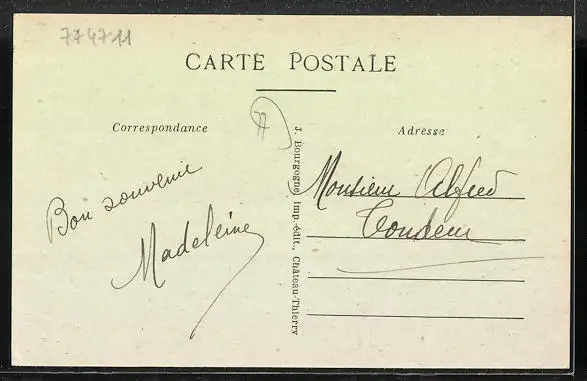 774711
CARTE POSTALE
77
Correspondance
Adresse
Bon souvenir
Madeleine
J. Bourgogne, imp.-édit., Château-Thierry
Monsieur Alfred